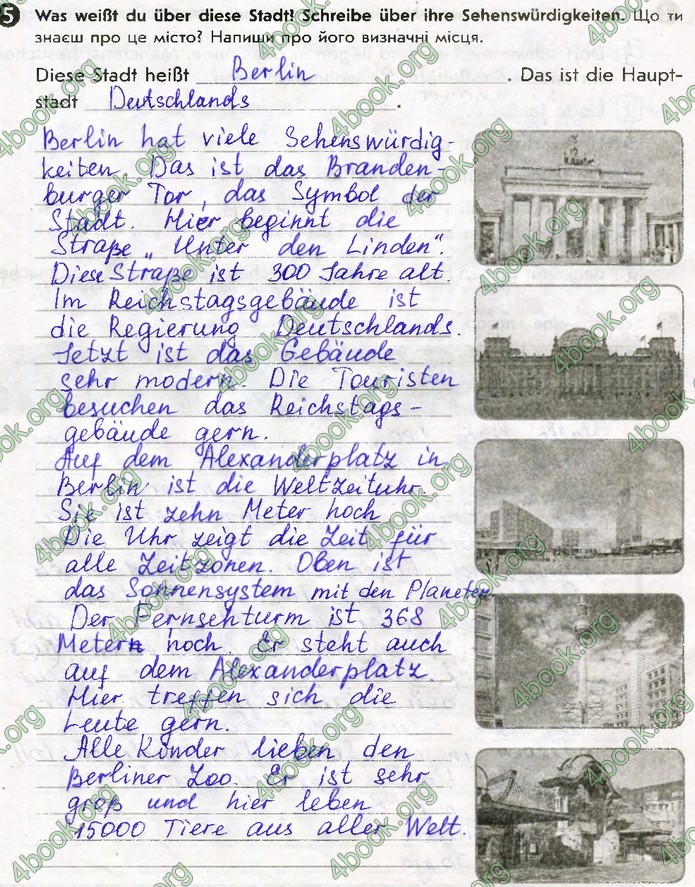 5 Was weißt du über diese Stadt? Schreibe über ihre Sehenswürdigkeiten. Що ти
знаєш про це місто? Напиши про його визначні місця.
Diese Stadt heißt Berlin. Das ist die Haupt-
stadt Deutschlands.
Berlin hat viele Sehenswürdig-
keiten. Das ist das Branden-
burger Tor, das Symbol der
Stadt. Hier beginnt die
Straße „Unter den Linden“.
Diese Straße ist 300 Jahre alt.
Im Reichstagsgebäude ist
die Regierung Deutschlands.
Jetzt ist das Gebäude
sehr modern. Die Touristen
besuchen das Reichstags-
gebäude gern.
Auf dem Alexanderplatz in
Berlin ist die Weltzeituhr.
Sie ist zehn Meter hoch
Die Uhr zeigt die Zeit für
alle Zeitzonen. Oben ist
das Sonnensystem mit den Planeten.
Der Fernsehturm ist 368
Meter hoch. Er steht auch
auf dem Alexanderplatz.
Hier treffen sich die
Leute gern.
Alle Kinder lieben den
Berliner Zoo. Er ist sehr
groß und hier leben
15000 Tiere aus aller Welt.
4book.org